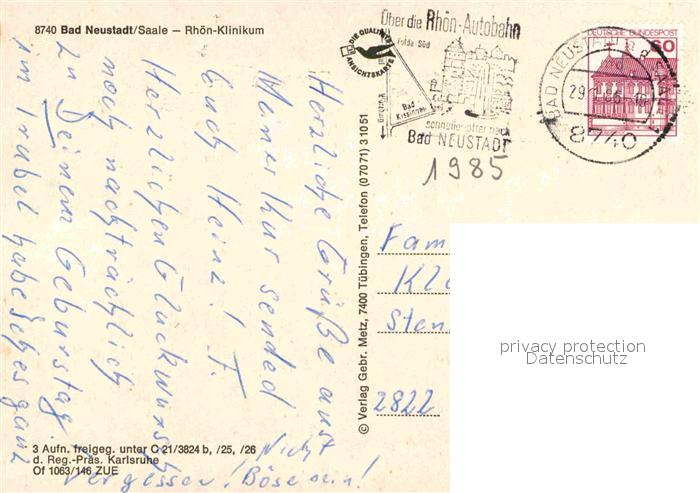 8740 Bad Neustadt/Saale — Rhön-Klinikum
DIE QUALITÄTS
ANSICHTSKARTE
Über die Rhön-Autobahn
Fulda-Süd
Bad
Kissingen
schneller öfter nach
Bad NEUSTADT
DEUTSCHE BUNDESPOST
60
BAD NEUSTADT
8740
1985
Herzliche Grüße aus
Meiner Kur sendet
Euch Heinz! F.
Herzlichen Glückwunsch
noch nachträglich
zu Deinem Geburtstag
im Trubel habe ich es ganz
vergessen! Nicht
Böse sein!
© Verlag Gebr. Metz, 7400 Tübingen, Telefon (0 70 71) 3 10 51
Fam
Kl
Sten
2822
privacy protection
Datenschutz
3 Aufn. freigeg. unter C 21/3824 b, /25, /26
d. Reg.-Präs. Karlsruhe
Of 1063/146 ZUE